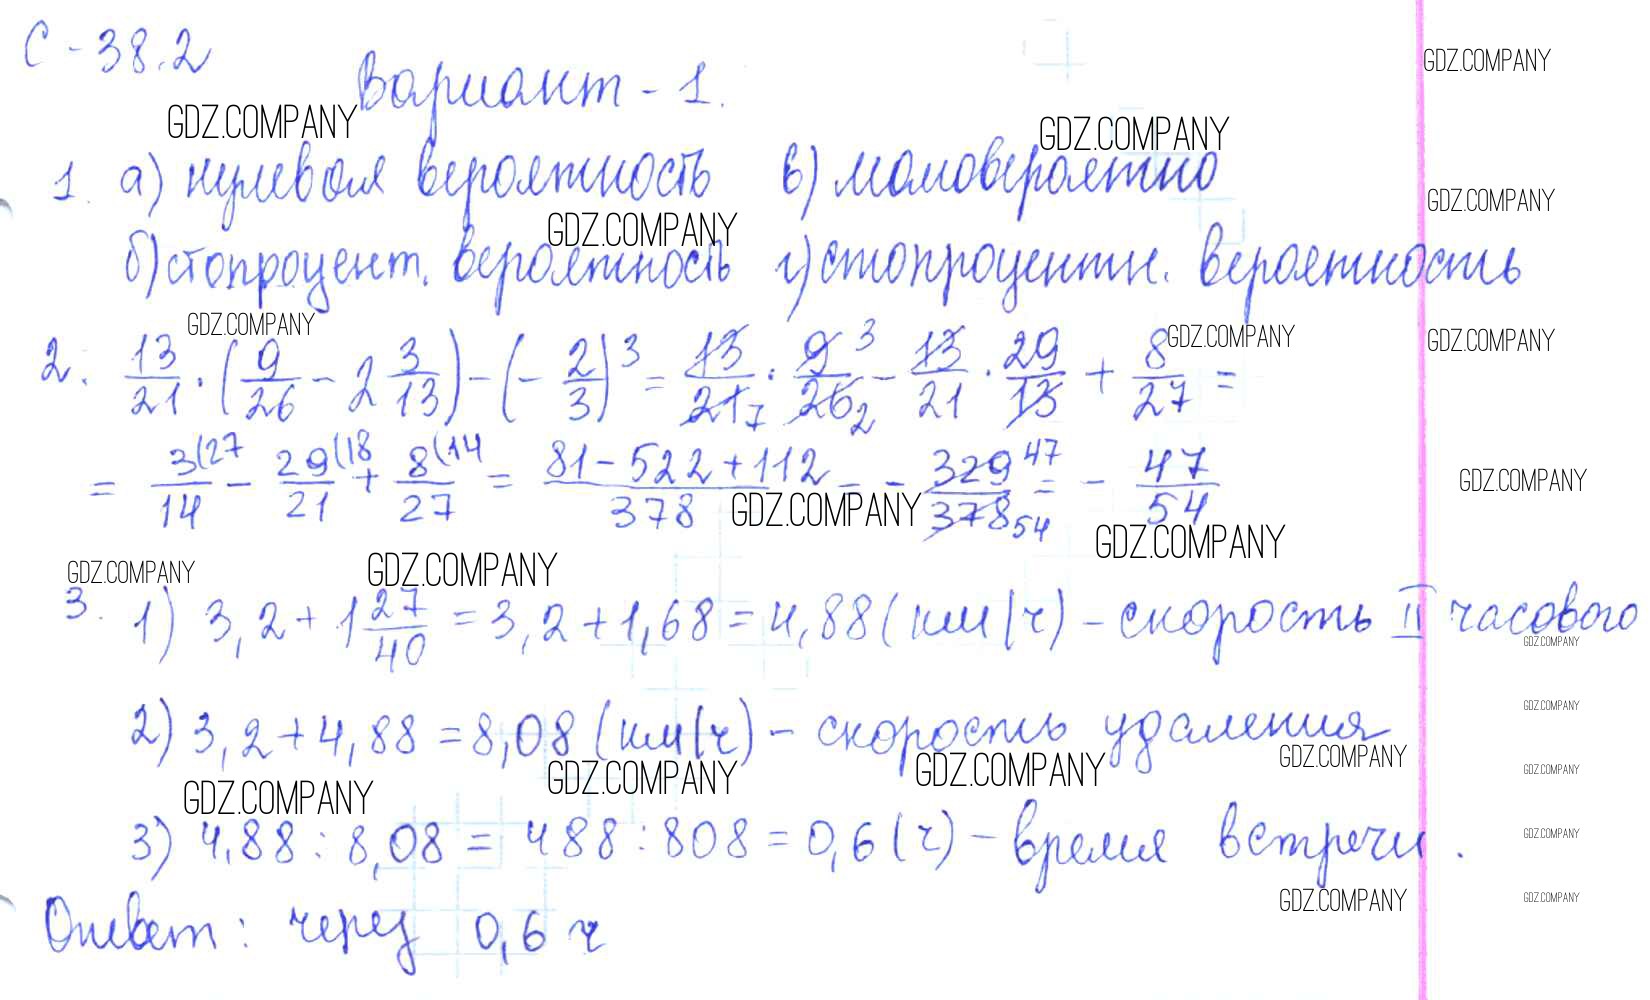 С-38.2
Вариант - 1.
GDZ.COMPANY
GDZ.COMPANY
GDZ.COMPANY
1. а) нулевая вероятность в) маловероятно
GDZ.COMPANY
GDZ.COMPANY
б) стопроцент. вероятность г) стопроцентн. вероятность
GDZ.COMPANY
GDZ.COMPANY
GDZ.COMPANY
2. 13/21 · (9/26 - 2 3/13) - (-2/3)^3 = 13/21 · 9/26 - 13/21 · 29/13 + 8/27 =
= 3/14 - 29/21 + 8/27 = (81 - 522 + 112)/378 = - 329/378 = - 47/54
GDZ.COMPANY
GDZ.COMPANY
GDZ.COMPANY
GDZ.COMPANY
GDZ.COMPANY
3. 1) 3,2 + 1 27/40 = 3,2 + 1,68 = 4,88 (км/ч) - скорость II часового
GDZ.COMPANY
GDZ.COMPANY
2) 3,2 + 4,88 = 8,08 (км/ч) - скорость удаления
GDZ.COMPANY
GDZ.COMPANY
GDZ.COMPANY
GDZ.COMPANY
GDZ.COMPANY
3) 4,88 : 8,08 = 488 : 808 = 0,6 (ч) - время встречи.
GDZ.COMPANY
GDZ.COMPANY
GDZ.COMPANY
Ответ: через 0,6 ч